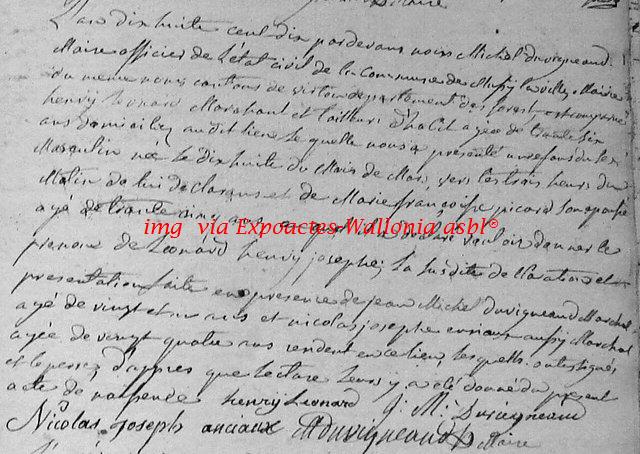 L'an dix huite cent dix pardevans nous Michel duvigneaud
Maire officier de l'état civil de la Commune de Mussy la ville, Mairie
du même nom, canton de virton departement des forest est comparue
henry Leonard Marchant et tailleur d'habit agée de trente six
ans domicilié audit lieu le quelle nous a presenté un enfans du sex
Masculin née le dix huite du Mois de Mars vers les trois heurs du
Matin de lui declarans et de Marie françoise picard son epouse
agé de trente cinq ans et declaré vouloir donner le
img via Expoactes-Wallonia asbl®
prenom de Leonard henry josephe; la susdite declaration et
presentation faite en presence de jean Michel duvigneaud Marchal
agé de vingt et un ans et nicolas josephe anciaux aussy Marchal
agée de vengt quatre ans residentence lieu, lesquells ont signés
d'apres que lecture leurs y a été donné du present
acte de naissence henry Leonard J: M: Duvigneaud
Nicolas Joseph anciaux MDuvigneaud Maire